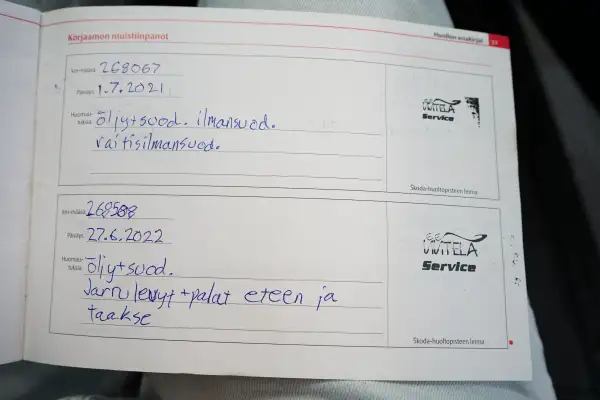 Korjaamon muistiinpanot
Huollon asiakirjat 77
km-määrä 268067
Päiväys 1.7.2021
Huomau-
tuksia öljy+suod. ilmansuod.
raitisilmansuod.
UUTELA
Service
Skoda-huoltopisteen leima
km-määrä
Päiväys 27.6.2022
Huomau-
tuksia öljy+suod.
Jarrulevyt+palat eteen ja
taakse
UUTELA
Service
Skoda-huoltopisteen leima